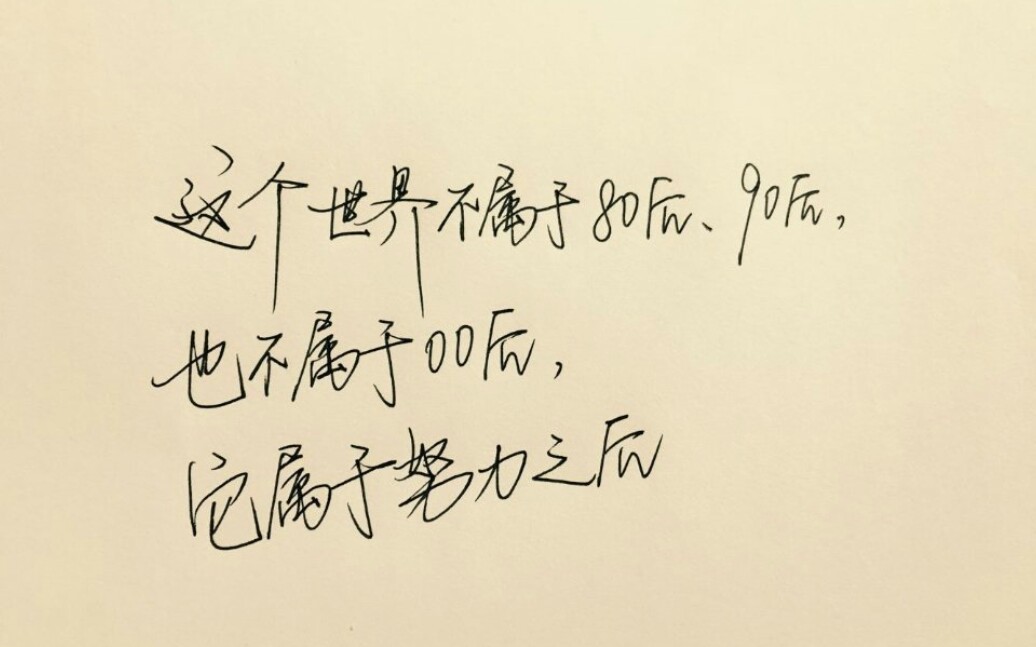 这个世界不属于80后、90后,
也不属于00后,
它属于努力之后